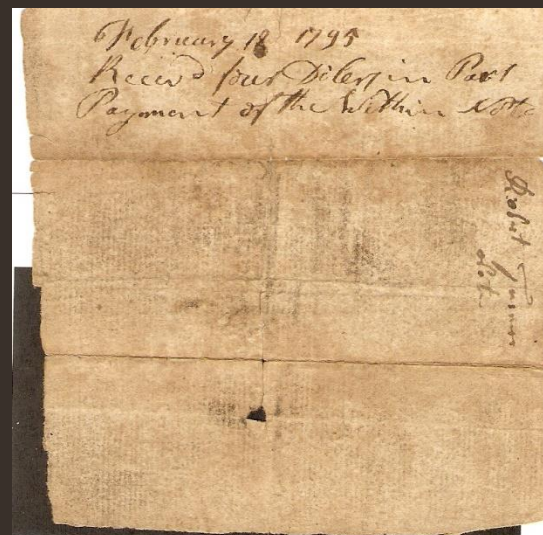 February 18 1795
Receivd four Dolers in Part
Payment of the Within Note
Robert Turner
Note